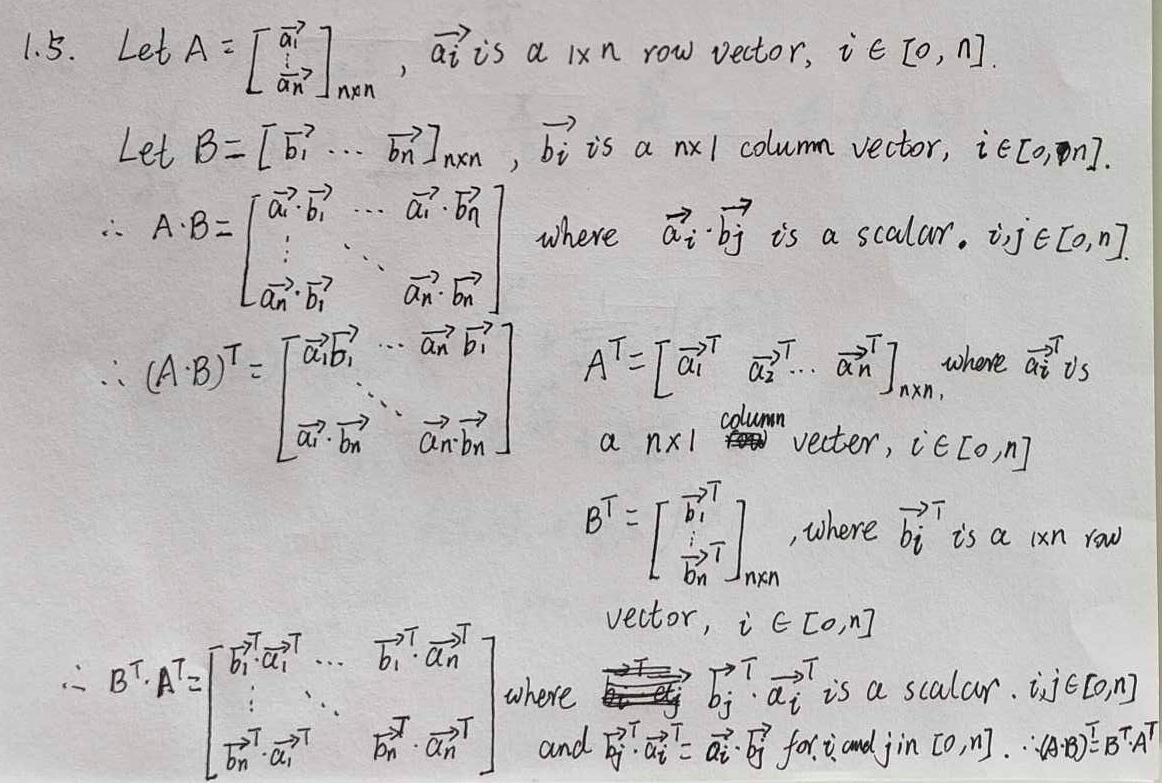 1.5. Let A = [a₁⃗ ⋮ aₙ⃗]ₙₓₙ , aᵢ⃗ is a 1×n row vector, i ∈ [0, n].
Let B = [b₁⃗ ... bₙ⃗]ₙₓₙ , bᵢ⃗ is a n×1 column vector, i ∈ [0, n].
∴ A·B = [a₁⃗·b₁⃗ ... a₁⃗·bₙ⃗ ⋮ ⋱ aₙ⃗·b₁⃗ aₙ⃗·bₙ⃗] where aᵢ⃗·bⱼ⃗ is a scalar. i,j ∈ [0,n].
∴ (A·B)ᵀ = [a₁⃗b₁⃗ ... aₙ⃗ b₁⃗ ⋱ a₁⃗·bₙ⃗ aₙ⃗·bₙ⃗] Aᵀ = [a₁⃗ᵀ a₂⃗ᵀ ... aₙ⃗ᵀ]ₙₓₙ, where aᵢ⃗ᵀ is
a n×1 column vecter, i ∈ [0,n]
Bᵀ = [b₁⃗ᵀ ⋮ bₙ⃗ᵀ]ₙₓₙ , where bᵢ⃗ᵀ is a 1×n row
vector, i ∈ [0,n]
∴ Bᵀ·Aᵀ = [b₁⃗ᵀ·a₁⃗ᵀ ... b₁⃗ᵀ·aₙ⃗ᵀ ⋮ ⋱ bₙ⃗ᵀ·a₁⃗ᵀ bₙ⃗ᵀ·aₙ⃗ᵀ] where bⱼ⃗ᵀ·aᵢ⃗ᵀ is a scalar. i,j ∈ [0,n]
and bⱼ⃗ᵀ·aᵢ⃗ᵀ = aᵢ⃗·bⱼ⃗ for i and j in [0,n]. ∴ (A·B)ᵀ = Bᵀ·Aᵀ